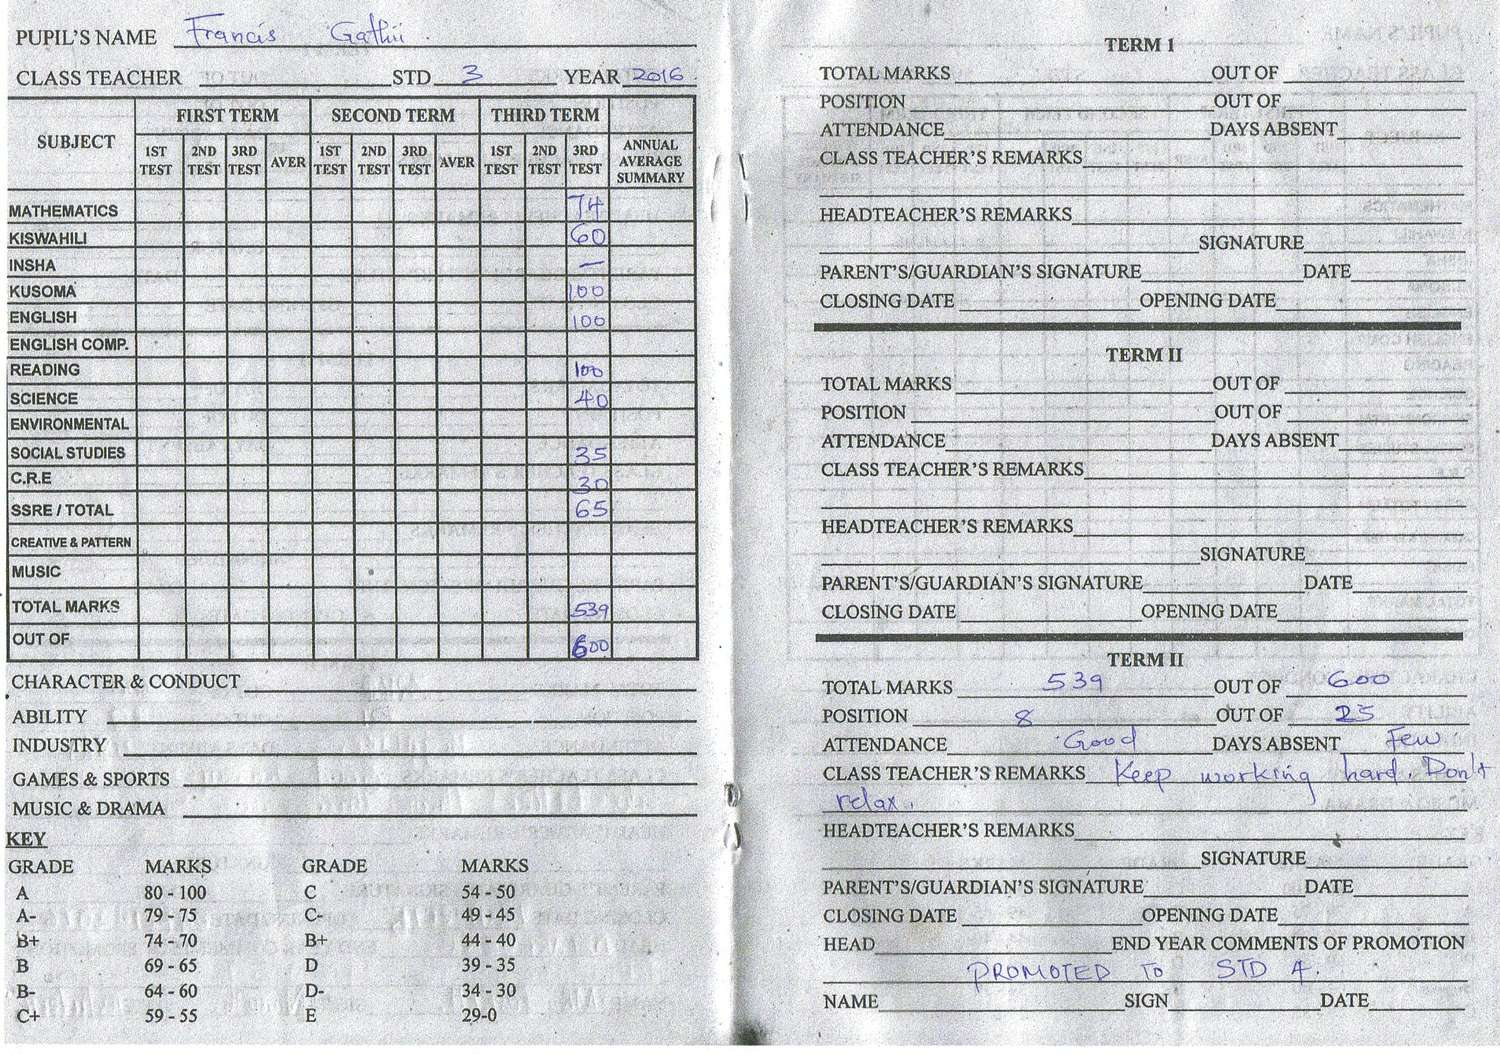 PUPIL'S NAME Francis Gathii
CLASS TEACHER STD 3 YEAR 2016
SUBJECT FIRST TERM SECOND TERM THIRD TERM ANNUAL AVERAGE SUMMARY
1ST TEST 2ND TEST 3RD TEST AVER 1ST TEST 2ND TEST 3RD TEST AVER 1ST TEST 2ND TEST 3RD TEST
MATHEMATICS 74
KISWAHILI 60
INSHA —
KUSOMA 100
ENGLISH 100
ENGLISH COMP.
READING 100
SCIENCE 40
ENVIRONMENTAL
SOCIAL STUDIES 35
C.R.E 30
SSRE / TOTAL 65
CREATIVE & PATTERN
MUSIC
TOTAL MARKS 539
OUT OF 600
CHARACTER & CONDUCT
ABILITY
INDUSTRY
GAMES & SPORTS
MUSIC & DRAMA
KEY
GRADE MARKS GRADE MARKS
A 80 - 100 C 54 - 50
A- 79 - 75 C- 49 - 45
B+ 74 - 70 B+ 44 - 40
B 69 - 65 D 39 - 35
B- 64 - 60 D- 34 - 30
C+ 59 - 55 E 29-0
TERM 1
TOTAL MARKS OUT OF
POSITION OUT OF
ATTENDANCE DAYS ABSENT
CLASS TEACHER'S REMARKS
HEADTEACHER'S REMARKS
SIGNATURE
PARENT'S/GUARDIAN'S SIGNATURE DATE
CLOSING DATE OPENING DATE
TERM II
TOTAL MARKS OUT OF
POSITION OUT OF
ATTENDANCE DAYS ABSENT
CLASS TEACHER'S REMARKS
HEADTEACHER'S REMARKS
SIGNATURE
PARENT'S/GUARDIAN'S SIGNATURE DATE
CLOSING DATE OPENING DATE
TERM II
TOTAL MARKS 539 OUT OF 600
POSITION 8 OUT OF 25
ATTENDANCE Good DAYS ABSENT Few
CLASS TEACHER'S REMARKS Keep working hard. Don't
relax.
HEADTEACHER'S REMARKS
SIGNATURE
PARENT'S/GUARDIAN'S SIGNATURE DATE
CLOSING DATE OPENING DATE
HEAD END YEAR COMMENTS OF PROMOTION
PROMOTED TO STD 4.
NAME SIGN DATE